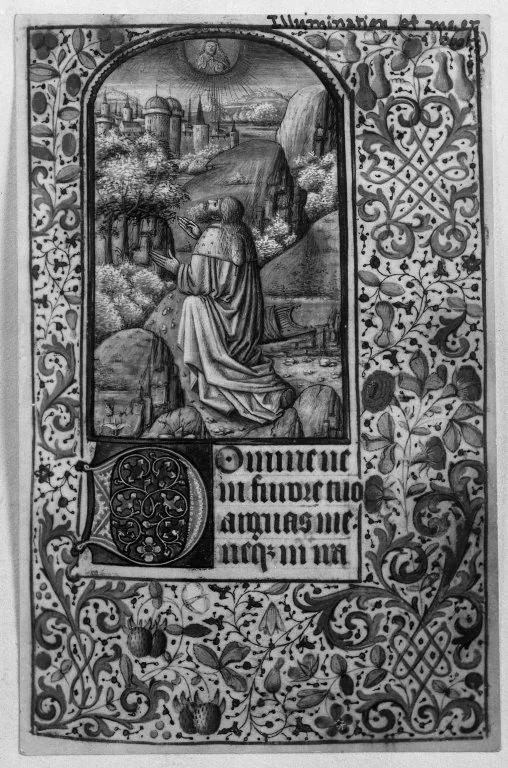 Illumination et
Domine ne
in furore tuo
arguas me·
neqz in ira